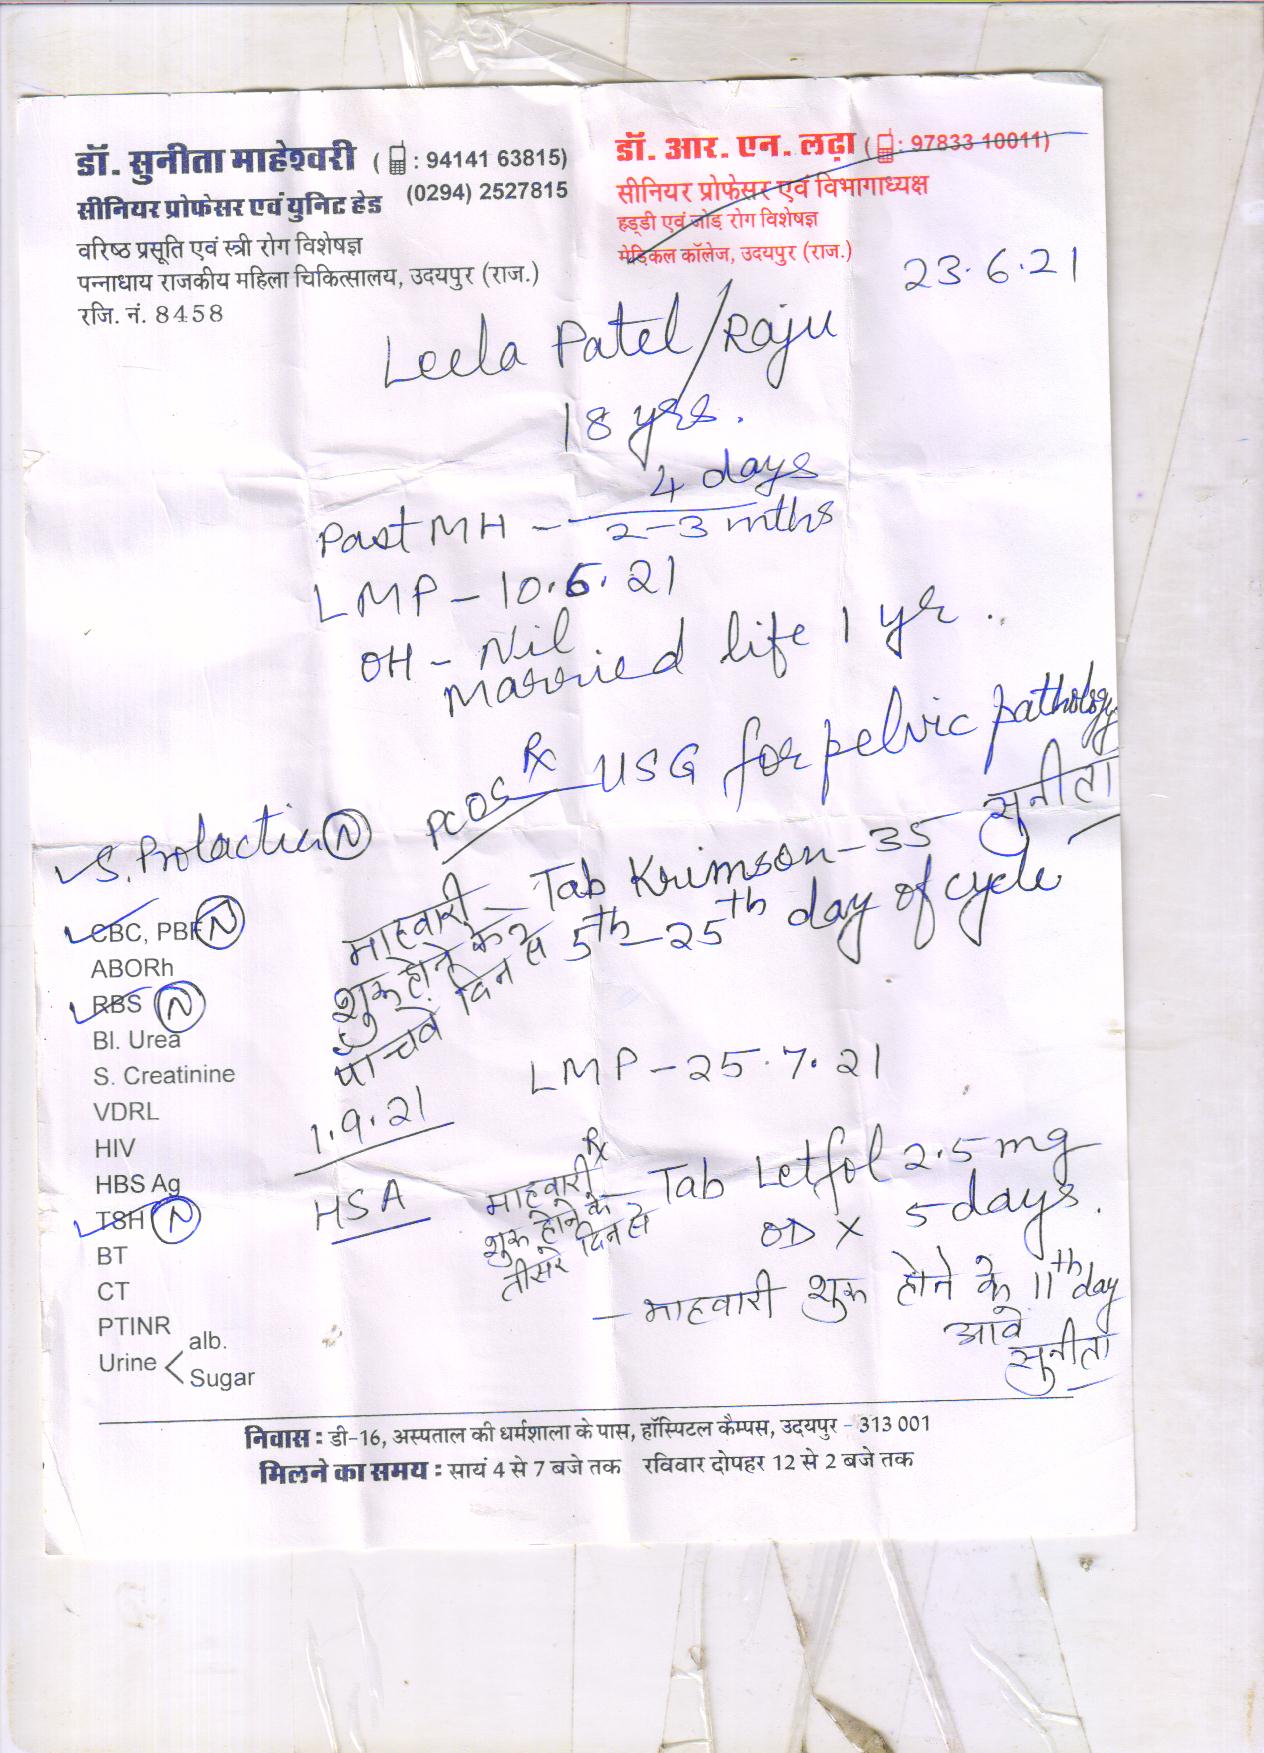 डॉ. सुनीता माहेश्वरी ( : 94141 63815)
(0294) 2527815
सीनियर प्रोफेसर एवं युनिट हेड
वरिष्ठ प्रसूति एवं स्त्री रोग विशेषज्ञ
पन्नाधाय राजकीय महिला चिकित्सालय, उदयपुर (राज.)
रजि. नं. 8458
डॉ. आर. एन. लढ़ा ( : 97833 10011)
सीनियर प्रोफेसर एवं विभागाध्यक्ष
हड्डी एवं जोड़ रोग विशेषज्ञ
मेडिकल कॉलेज, उदयपुर (राज.)
23.6.21
Leela Patel/Raju
18 yrs.
4 days
Past MH - 2-3 mths
LMP - 10.6.21
OH - Nil
Married life 1 yr.
Rx USG for pelvic pathology
PCOS
सुनीता
S. Prolactin N
माहवारी - Tab Krimson-35
शुरू होने के 5th-25th day of cycle
पाँचवे दिन से
CBC, PBF N
ABORh
RBS N
Bl. Urea
S. Creatinine
VDRL
HIV
HBS Ag
TSH N
BT
CT
PTINR
Urine alb.
Sugar
LMP - 25.7.21
1.9.21
HSA
Rx
माहवारी - Tab Letfol 2.5 mg
शुरू होने के OD x 5 days.
तीसरे दिन से
- माहवारी शुरू होने के 11th day
आवे
सुनीता
निवास : डी-16, अस्पताल की धर्मशाला के पास, हॉस्पिटल कैम्पस, उदयपुर - 313 001
मिलने का समय : सायं 4 से 7 बजे तक रविवार दोपहर 12 से 2 बजे तक